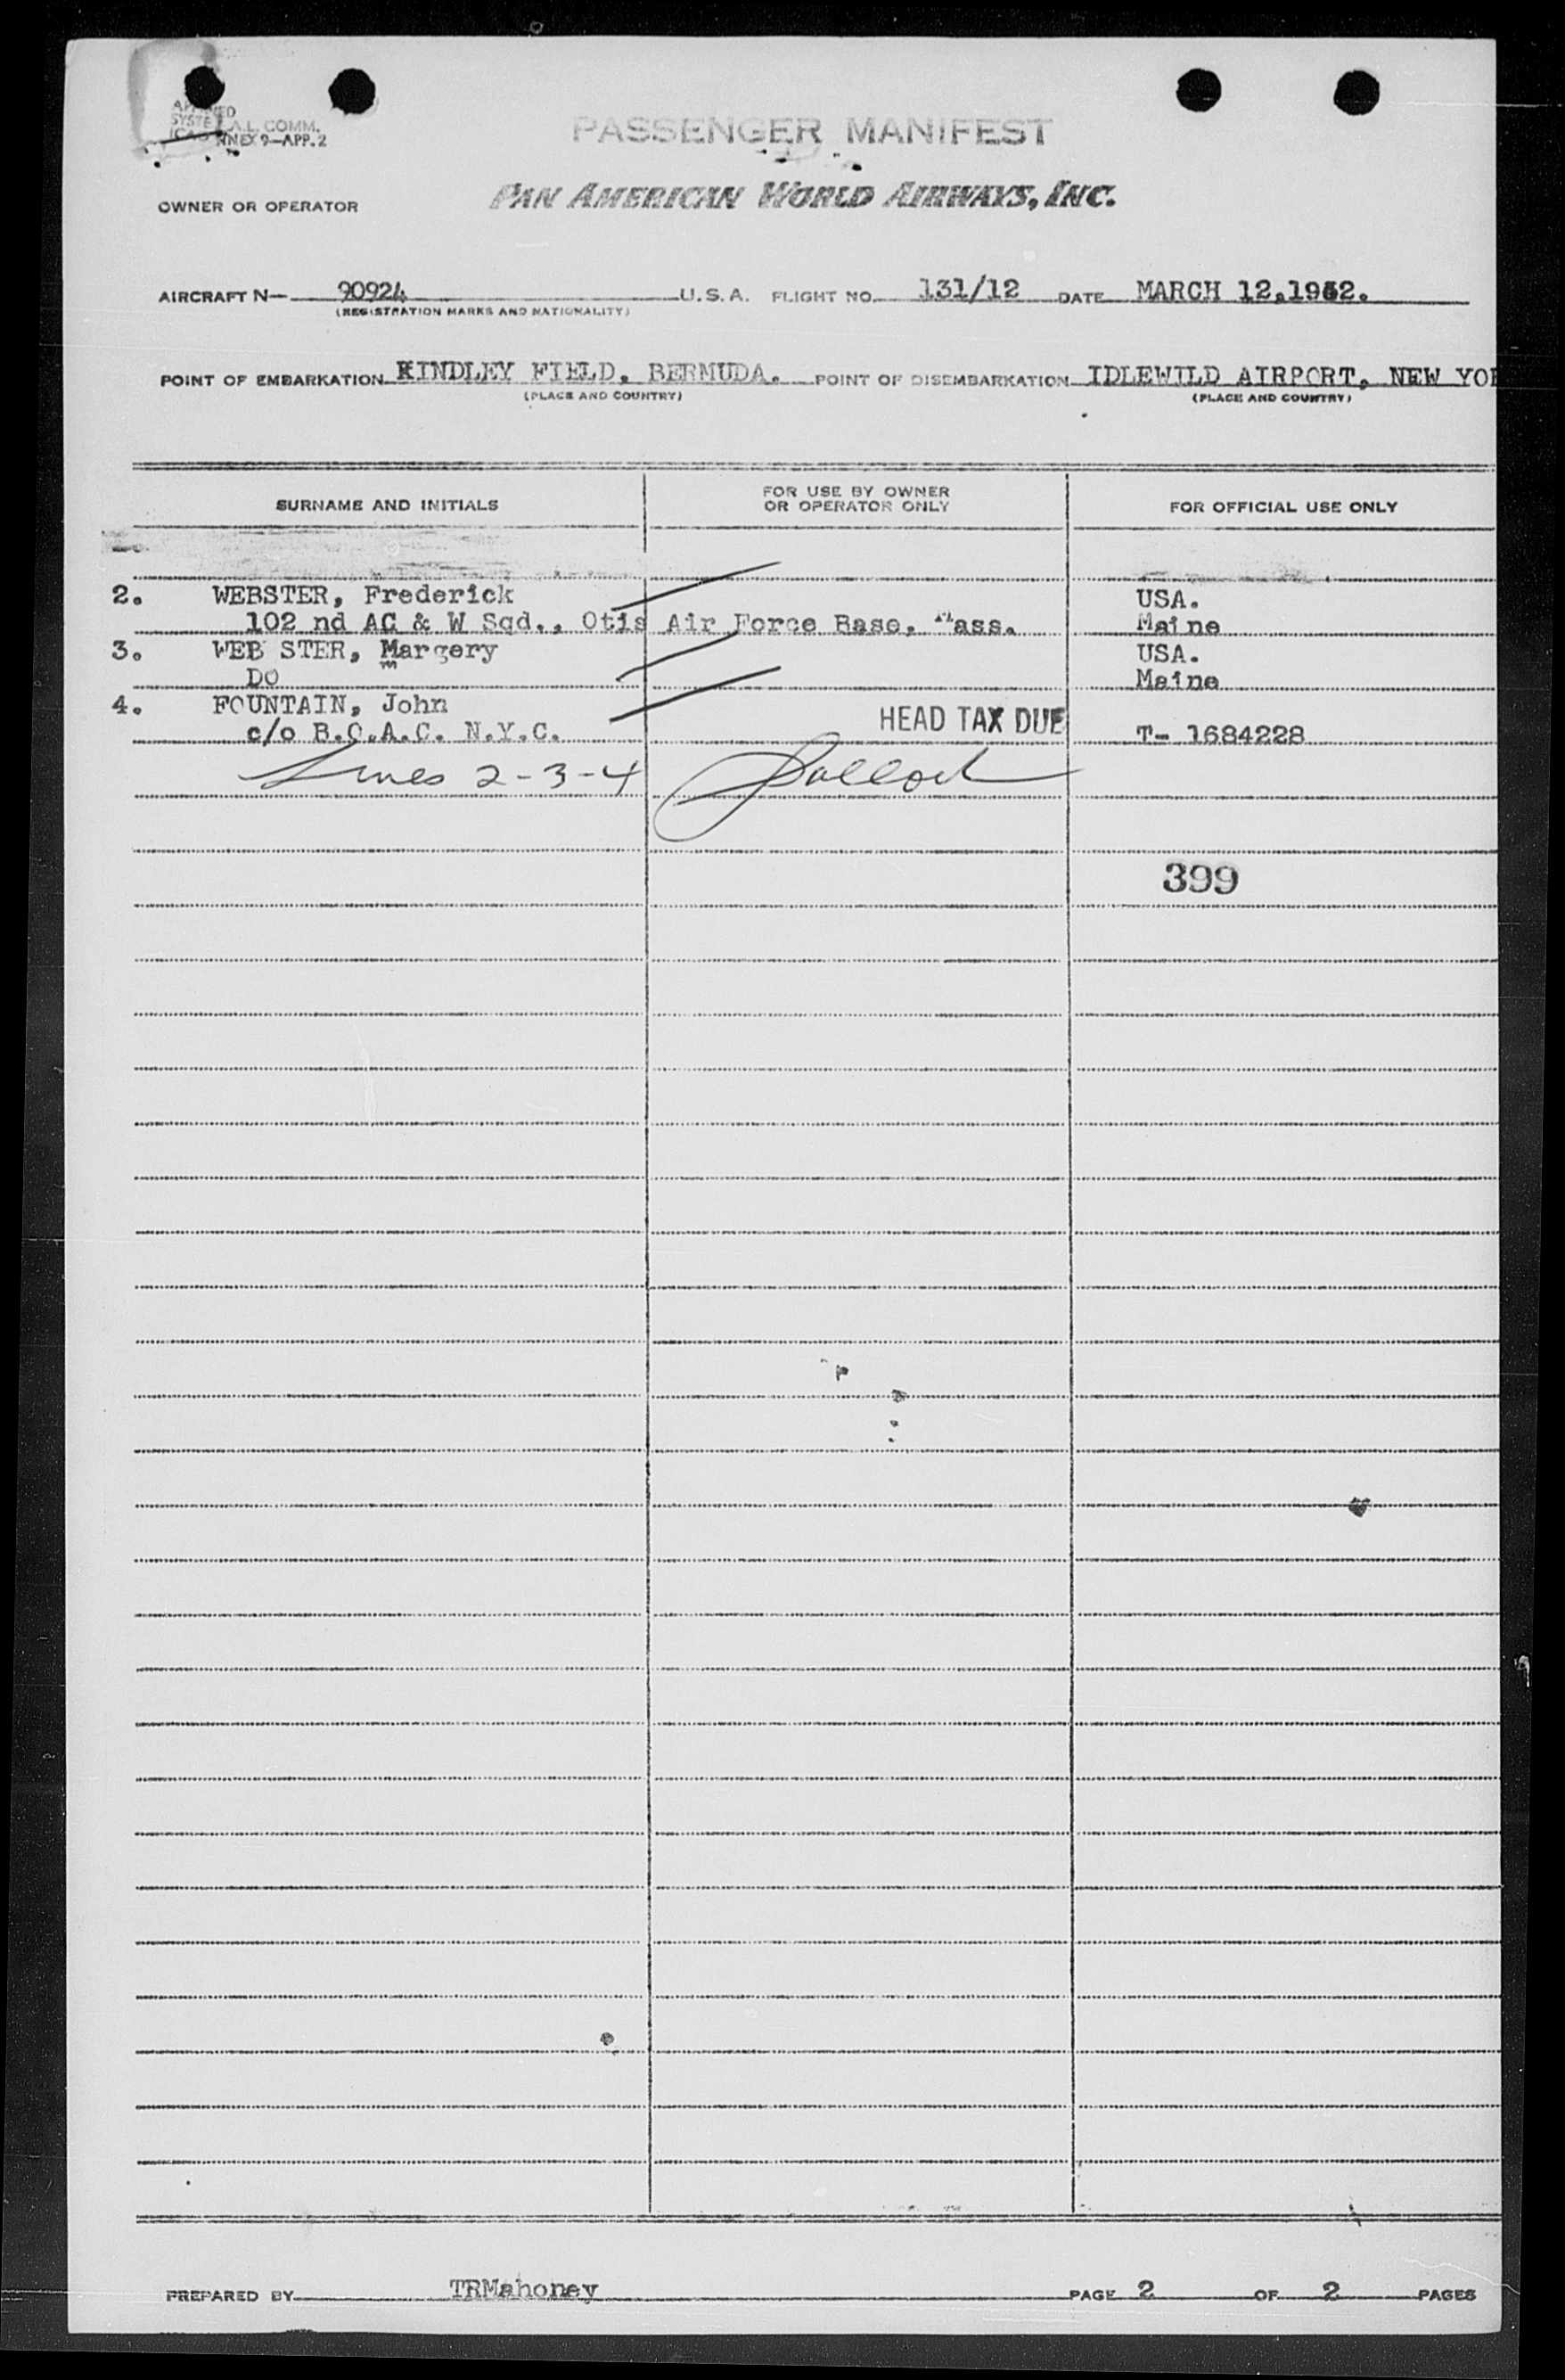 A.L. COMM.
ANNEX 9—APP. 2
PASSENGER MANIFEST
OWNER OR OPERATOR PAN AMERICAN WORLD AIRWAYS, INC.
AIRCRAFT N— 90924 U.S.A. FLIGHT NO. 131/12 DATE MARCH 12,1952.
(REGISTRATION MARKS AND NATIONALITY)
POINT OF EMBARKATION KINDLEY FIELD, BERMUDA. POINT OF DISEMBARKATION IDLEWILD AIRPORT, NEW YOR
(PLACE AND COUNTRY) (PLACE AND COUNTRY)
SURNAME AND INITIALS FOR USE BY OWNER OR OPERATOR ONLY FOR OFFICIAL USE ONLY
2. WEBSTER, Frederick USA.
102 nd AC & W Sqd., Otis Air Force Base, Mass. Maine
3. WEB STER, Margery USA.
DO Maine
4. FOUNTAIN, John
c/o B.O.A.C. N.Y.C. HEAD TAX DUE T- 1684228
Lines 2-3-4
399
PREPARED BY TRMahoney PAGE 2 OF 2 PAGES